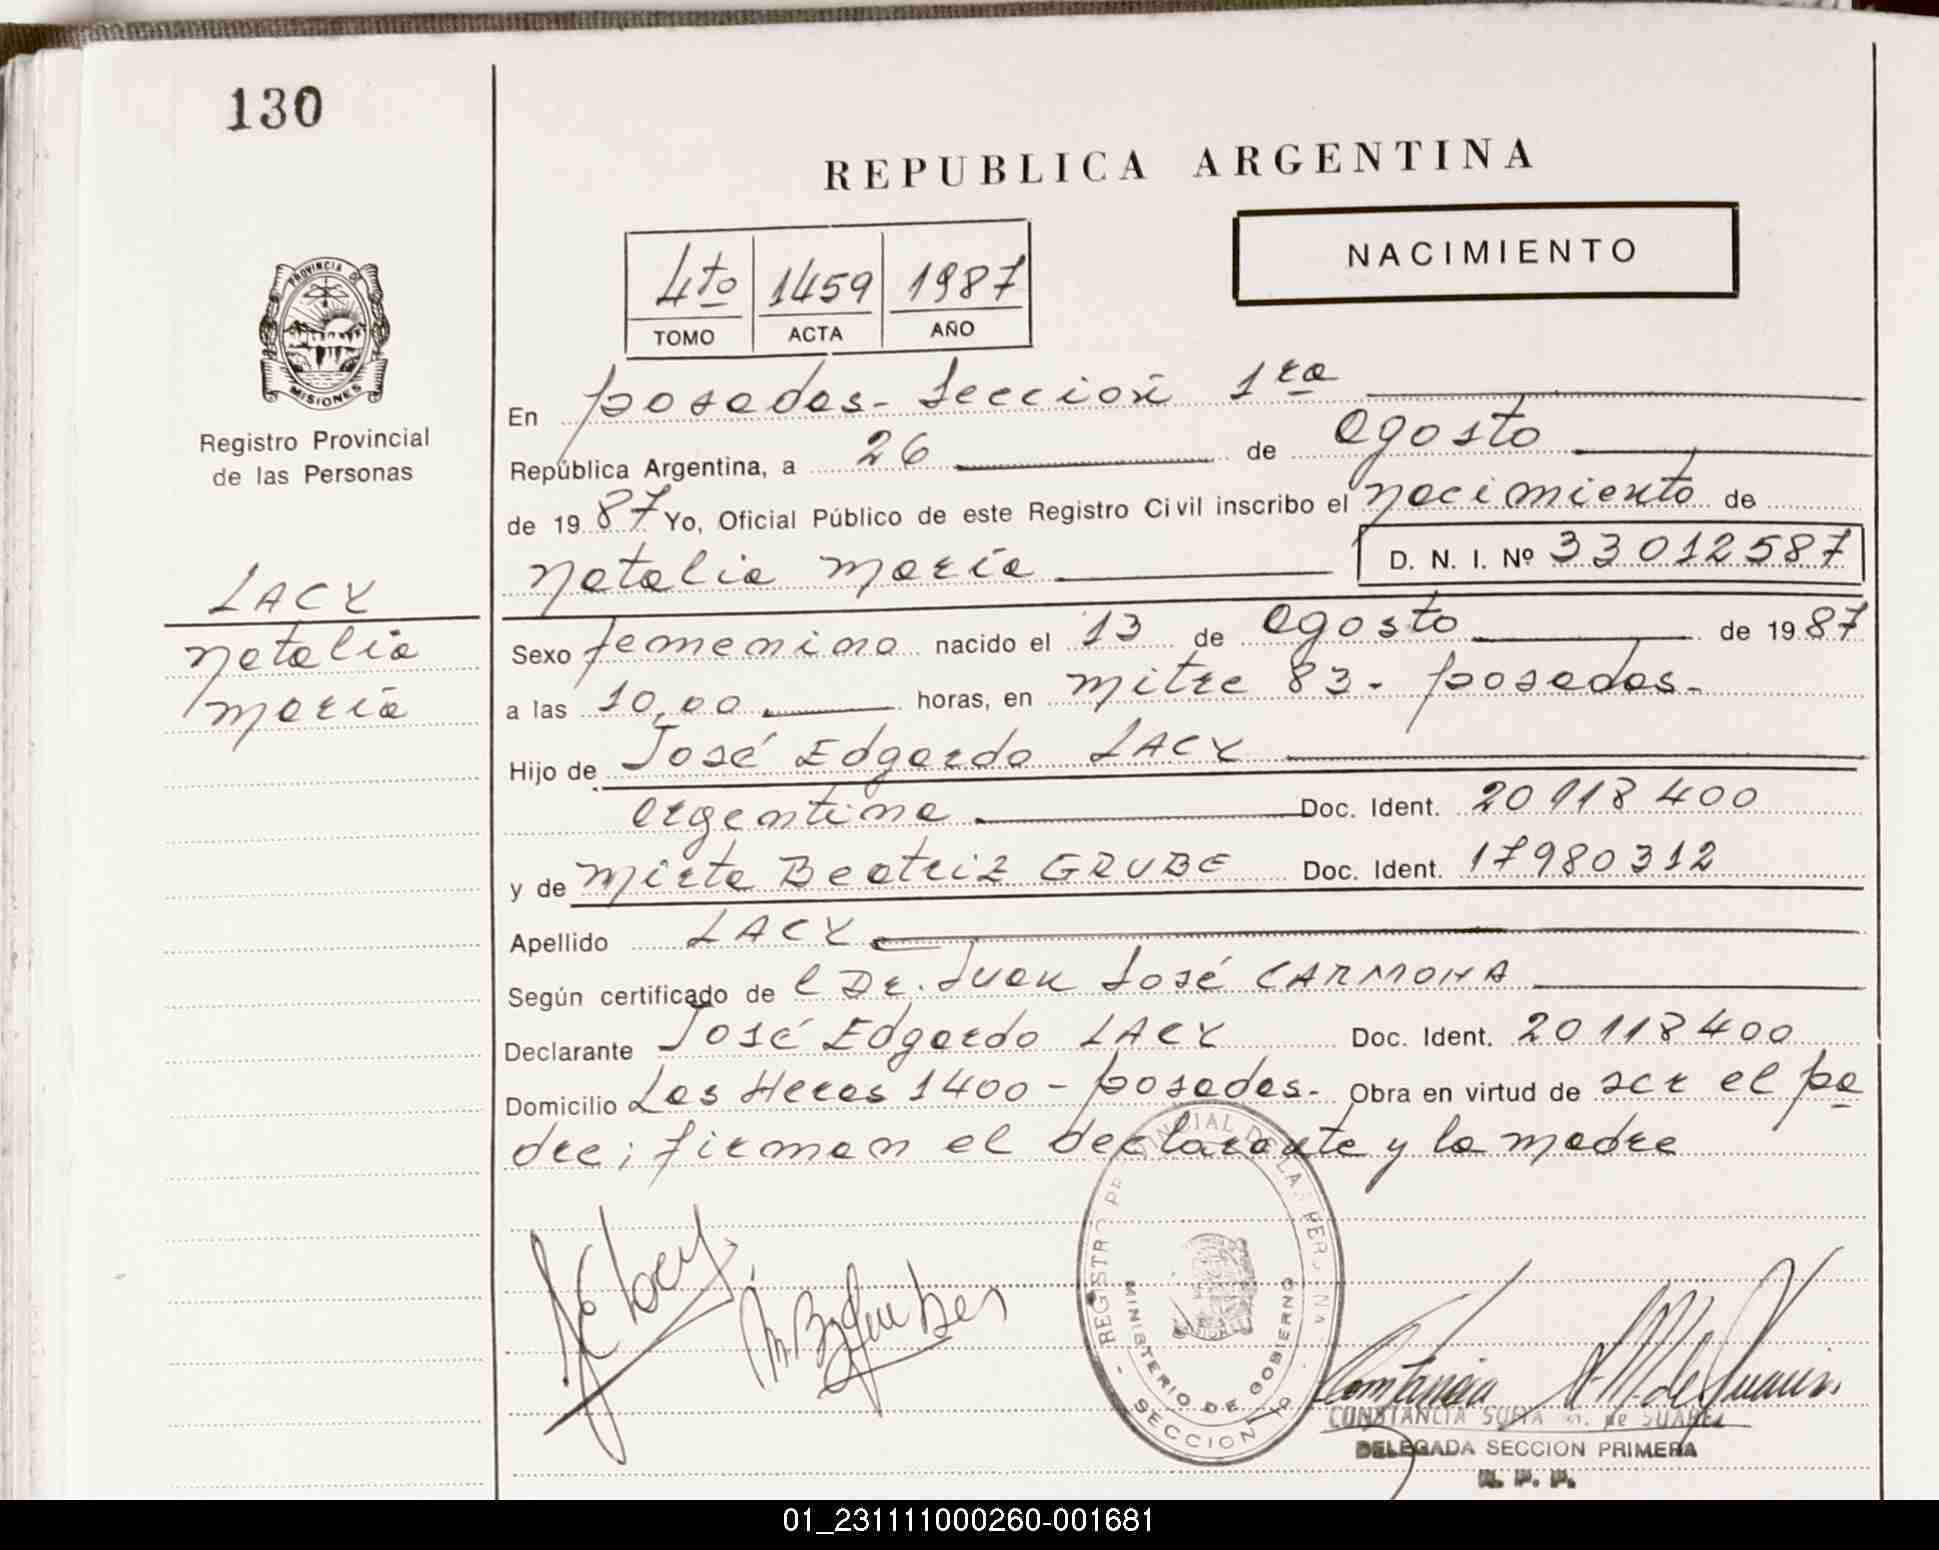 130
REPUBLICA ARGENTINA
NACIMIENTO
4to 1459 1987
TOMO ACTA AÑO
PROVINCIA DE
MISIONES
Registro Provincial
de las Personas
En posadas - Sección 1ra
República Argentina, a 26 de agosto
de 1987 Yo, Oficial Público de este Registro Civil inscribo el nacimiento de
Natalia María D. N. I. Nº 33012587
LACY
Natalia
María
Sexo femenino nacido el 13 de agosto de 1987
a las 10,00 horas, en mitre 83 - posadas -
Hijo de José Edgardo LACY
argentina Doc. Ident. 20118400
y de Mirta Beatriz GRUBE Doc. Ident. 17980312
Apellido LACY
Según certificado de l Dr. Juan José CARMONA
Declarante José Edgardo LACY Doc. Ident. 20118400
Domicilio Las Heras 1400 - posadas - Obra en virtud de ser el pa
dre; firman el declarante y la madre
MINISTERIO DE GOBIERNO
SECCION
CONSTANCIA de SUAREZ
DELEGADA SECCION PRIMERA
R. P. P.
01_231111000260-001681